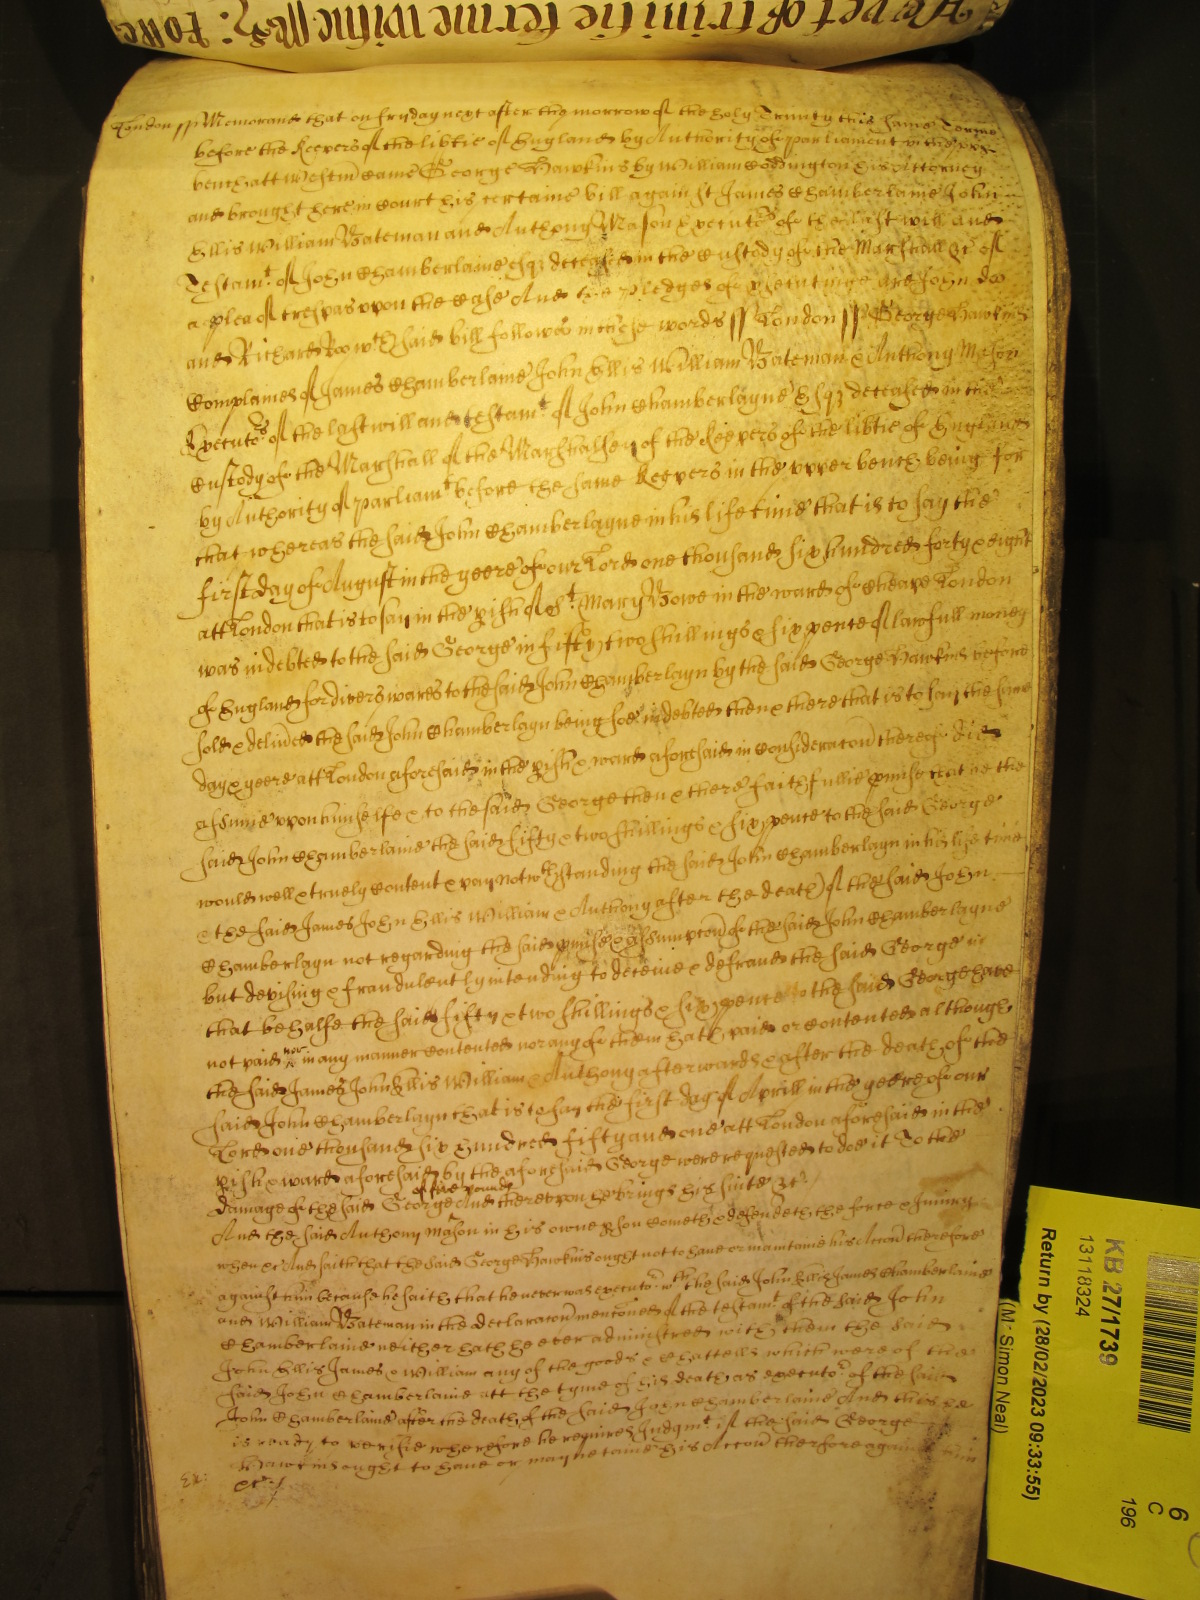 London // Memorand that on fryday next after the morrow of the holy Trinity this same Terme
before the Keepers of the libtie of England by Authority of parliament in the upp
bench att Westm came George Hawkins by William Coddington his Attorney
and brought here in Court his certaine bill against James Chamberlaine John
Ellis William Bateman and Anthony Mason Executors of the last will and
Testamt of John Chamberlaine esqz deceased in the Custody of the Marshall &c of
a plea of trespas upon the Case And the pledges of psecutinge are John doo
and Richard Roo wch said bill followes in these words // London // George Hawkins
Complaines of James Chamberlaine John Ellis William Bateman & Anthony Mason
Executors of the last will and testamt of John Chamberlayne Esqz deceased in the
Custody of the Marshall of the Marshalsey of the Keepers of the libtie of England
by Authority of parliamt before the same Keepers in the upper bench being for
that whereas the said John Chamberlayne in his life time that is to say the
first day of August in the yeere of our Lord one thousand six hundred forty & eight
att London that is to say in the pish of St Mary Bowe in the ward of Cheape London
was indebted to the said George in fifty two shillings & six pence of lawfull money
of England for divers wares to the said John Chamberlayn by the said George Hawkins before
sold & delived the said John Chamberlayn being soe indebted then & there that is to say the same
day & yeere att London aforesaid in the pish & ward aforesaid in Consideracon thereof did
assume upon himselfe & to the said George then & there faithfullie pmise that he the
said John Chamberlaine the said fifty & two shillings & six pence to the said George
would well & truely Content & pay Notwthstanding the said John Chamberlayn in his life time
& the said James John Ellis William & Anthony after the death of the said John
Chamberlayn not regarding the said pmise & assumpcon of the said John Chamberlayne
but devising & fraudulently intending to deceive & defraud the said George in
that behalfe the said fifty & two shillings & six pence to the said George have
not paid nor in any manner Contented nor any of them hath paid or Contented although
the said James John Ellis William & Anthony afterwards & after the death of the
said John Chamberlayn that is to say the first day of Aprill in the yeere of our
Lord one thousand six hundred fifty and one att London aforesaid in the
pish & ward aforesaid by the aforesaid George were requested to doe it To the
damage of the said George of five pounds And thereupon he brings his suite &c
And the said Anthony Mason in his owne pson Cometh & defendeth the force & Iniury
when &c And saith that the said George Hawkins ought not to have or maintaine his Accon therefore
against him because he saith that he never was executor wth the said John Ellis James Chamberlaine
and William Bateman in the declaracon menconed of the testamt of the said John
Chamberlaine neither hath he ever administred with them the said
John Ellis James & William any of the goods & Chattells which were of the
said John Chamberlaine att the tyme of his death as executor of the said
John Chamberlaine after the death of the said John Chamberlaine And this he
is ready to verifie wherefore he requires Judgmt if the said George
Hawkins ought to have or maynetaine his Accon therfore against him
&c
Ex:
KB 27/1739
13118324
Return by (28/02/2023 09:33:55)
(Mr Simon Neal)
6
C
196